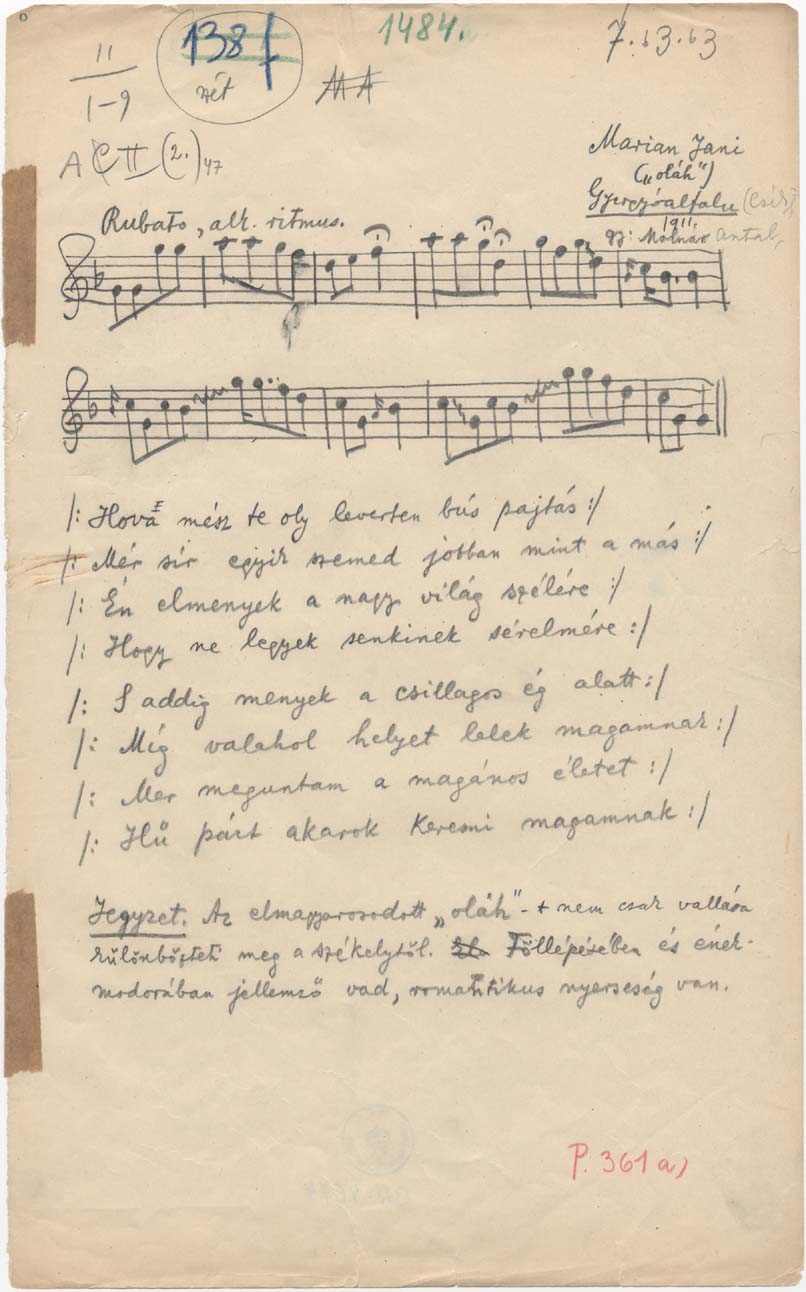 11
1-9
138f
1484.
7.63.63
A C II (2.) 47
Marian Jani
("oláh")
Gyergyóalfalu (Csík)
1911.
gy: Molnár Antal
Rubato, alk. ritmus.
/: Hová mész te oly leverten bús pajtás :/
/: Mér sír egyik szemed jobban mint a más :/
/: Én elmenyek a nagy világ szélére :/
/: Hogy ne legyek senkinek sérelmére :/
/: S addig menyek a csillagos ég alatt :/
/: Míg valahol helyet lelek magamnak :/
/: Mer meguntam a magános életet :/
/: Hű párt akarok keresni magamnak :/
Jegyzet. Az elmagyarosodott „oláh"-t nem csak vallása
különbözteti meg a székelytől. Föllépésében és ének-
modorában jellemző vad, romantikus nyerseség van.
P. 361a)